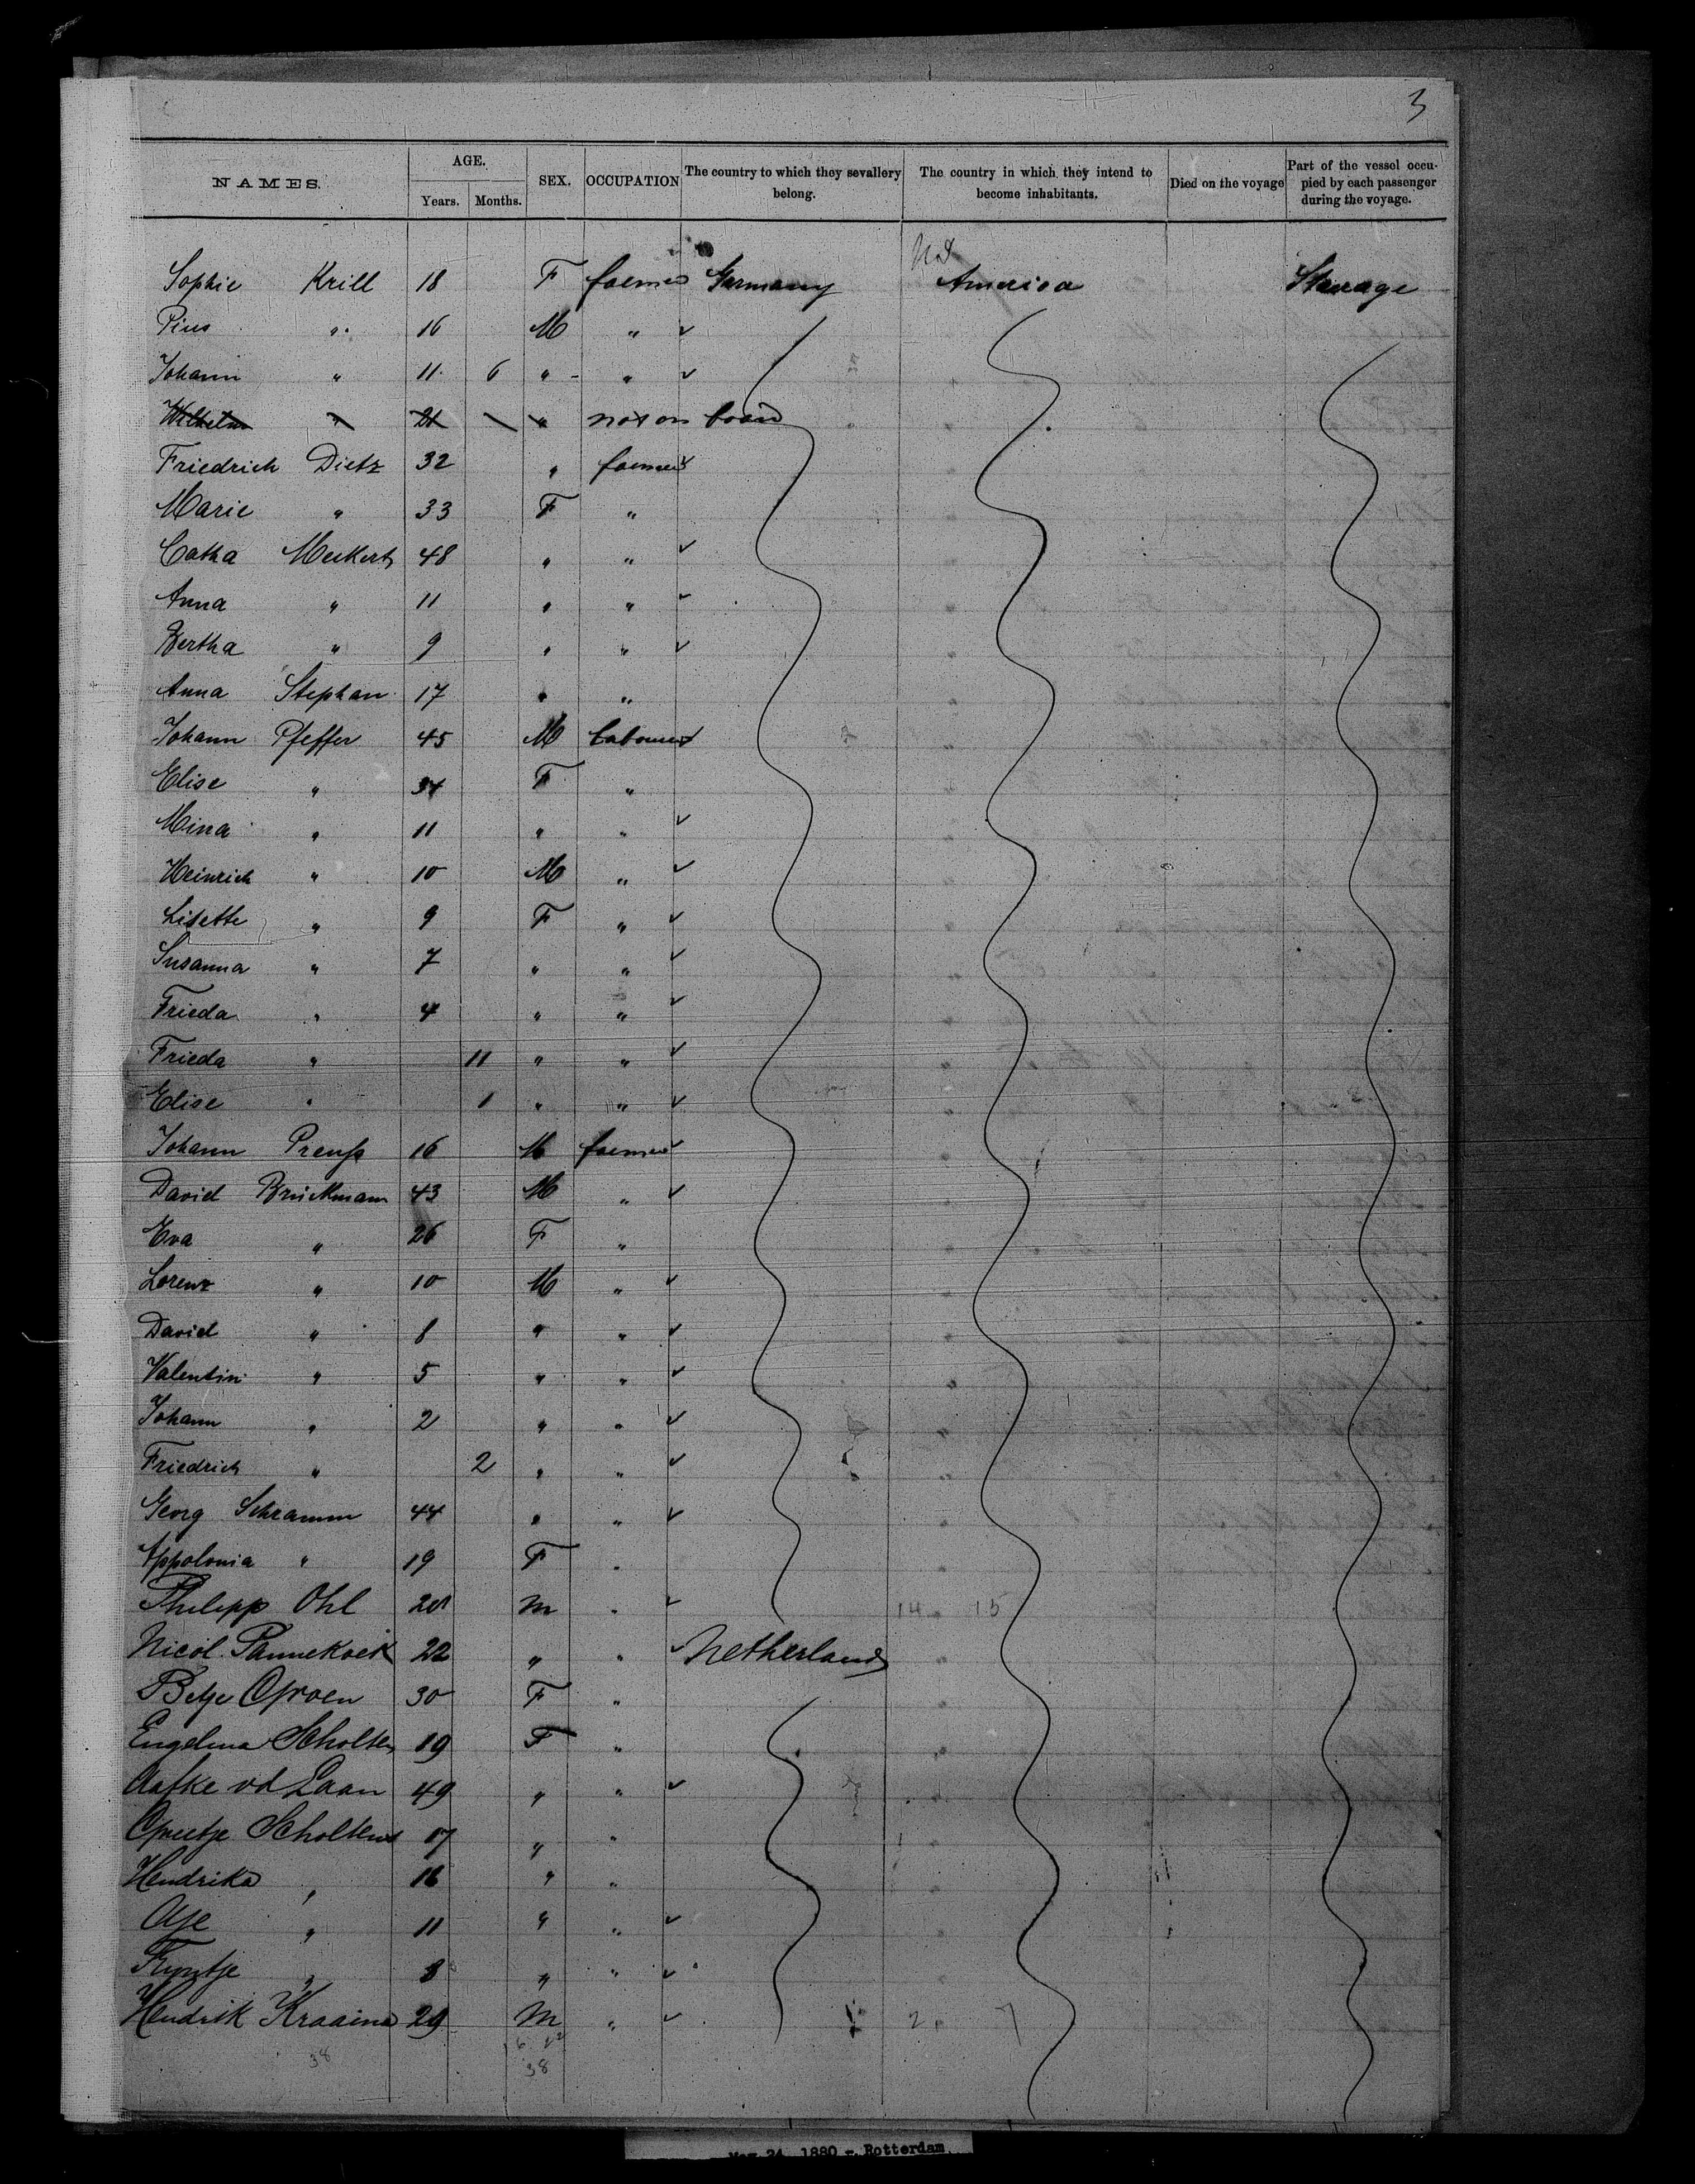 3
NAMES. AGE. Years. Months. SEX. OCCUPATION The country to which they sevallery belong. The country in which they intend to become inhabitants. Died on the voyage Part of the vessel occupied by each passenger during the voyage.
Sophie Krill 18 F farmer Germany America Steerage
Pius " 16 M "
Johann " 11 6 " "
Wilhelm " 21 " not on board
Friedrich Dietz 32 " farmer
Marie " 33 F "
Catha Meckert 48 " "
Anna " 11 " "
Bertha " 9 " "
Anna Stephan 17 " "
Johann Pfeffer 45 M Labourer
Elise " 34 F "
Mina " 11 " "
Heinrich " 10 M "
Lisette " 9 F "
Susanna " 7 " "
Frieda " 4 " "
Frieda " 11 " "
Elise " 1 " "
Johann Preuß 16 M farmer
David Brückmann 43 M "
Eva " 26 F "
Lorenz " 10 M "
David " 8 " "
Valentin " 5 " "
Johann " 2 " "
Friedrich " 2 " "
Georg Schramm 44 " "
Appolonia " 19 F "
Philipp Ohl 20 M " 14 15
Nicol. Pannekoek 22 " " Netherland
Betje 30 F "
Engelina Scholtens 19 F "
Aafke vd Laan 49 " "
Scholtens 17 " "
Hendrika " 16 " "
" 11 " "
" 8 " "
Hendrik Kraaima 29 M " 2 7
38 38
1880 - Rotterdam